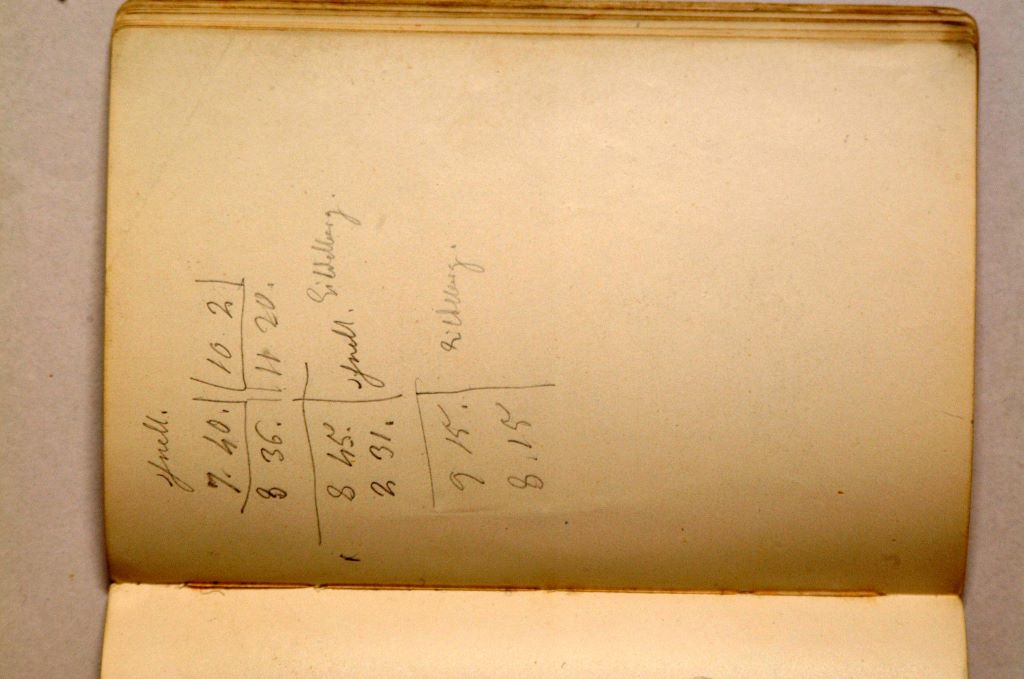 schnell.
7. 40. | 10. 2
8 36. | 11 20.
8 45. | schnell. Heidelberg.
2 31.
9 15. | Heidelberg.
8. 15